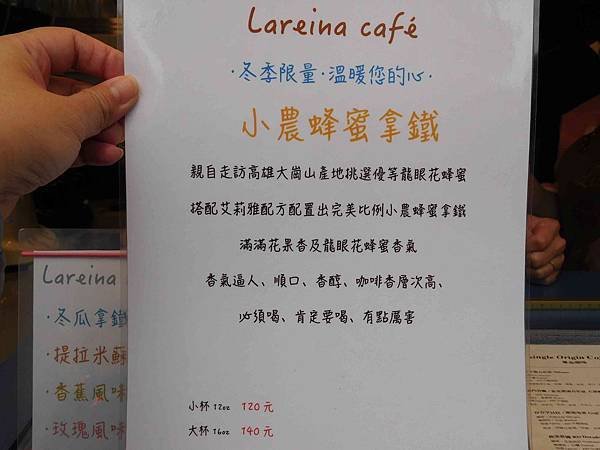 Lareina café
·冬季限量·溫暖您的心·
小農蜂蜜拿鐵
親自走訪高雄大崗山產地挑選優等龍眼花蜂蜜
搭配艾莉雅配方配置出完美比例小農蜂蜜拿鐵
滿滿花果香及龍眼花蜂蜜香氣
香氣逼人、順口、香醇、咖啡香層次高、
必須喝、肯定要喝、有點厲害
小杯 12oz 120元
大杯 16oz 140元
Lareina
·冬瓜拿鐵
·提拉米蘇
·香蕉風味
·玫瑰風味
Single Origin Co